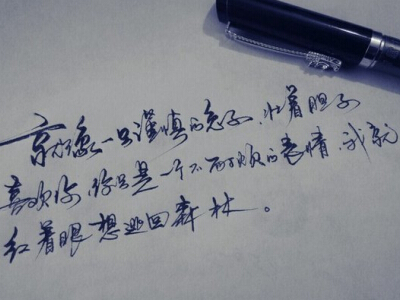 就像一只谨慎的兔子，壮着胆子
喜欢你，你只是一个不耐烦的表情，我就
红着眼想逃回森林。